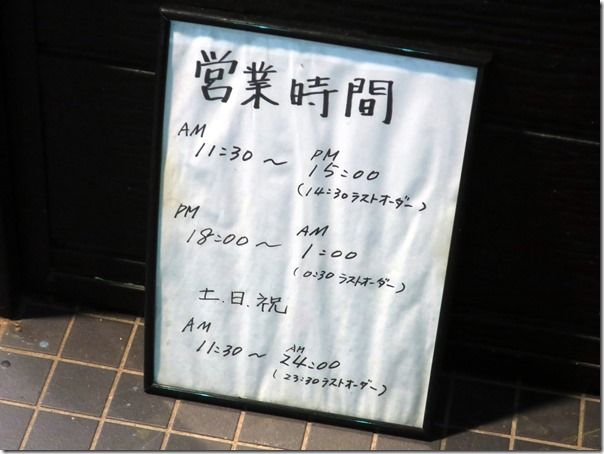 営業時間
AM 11:30 〜 PM 15:00
(14:30 ラストオーダー)
PM 18:00 〜 AM 1:00
(0:30 ラストオーダー)
土.日.祝
AM 11:30 〜 AM 24:00
(23:30 ラストオーダー)